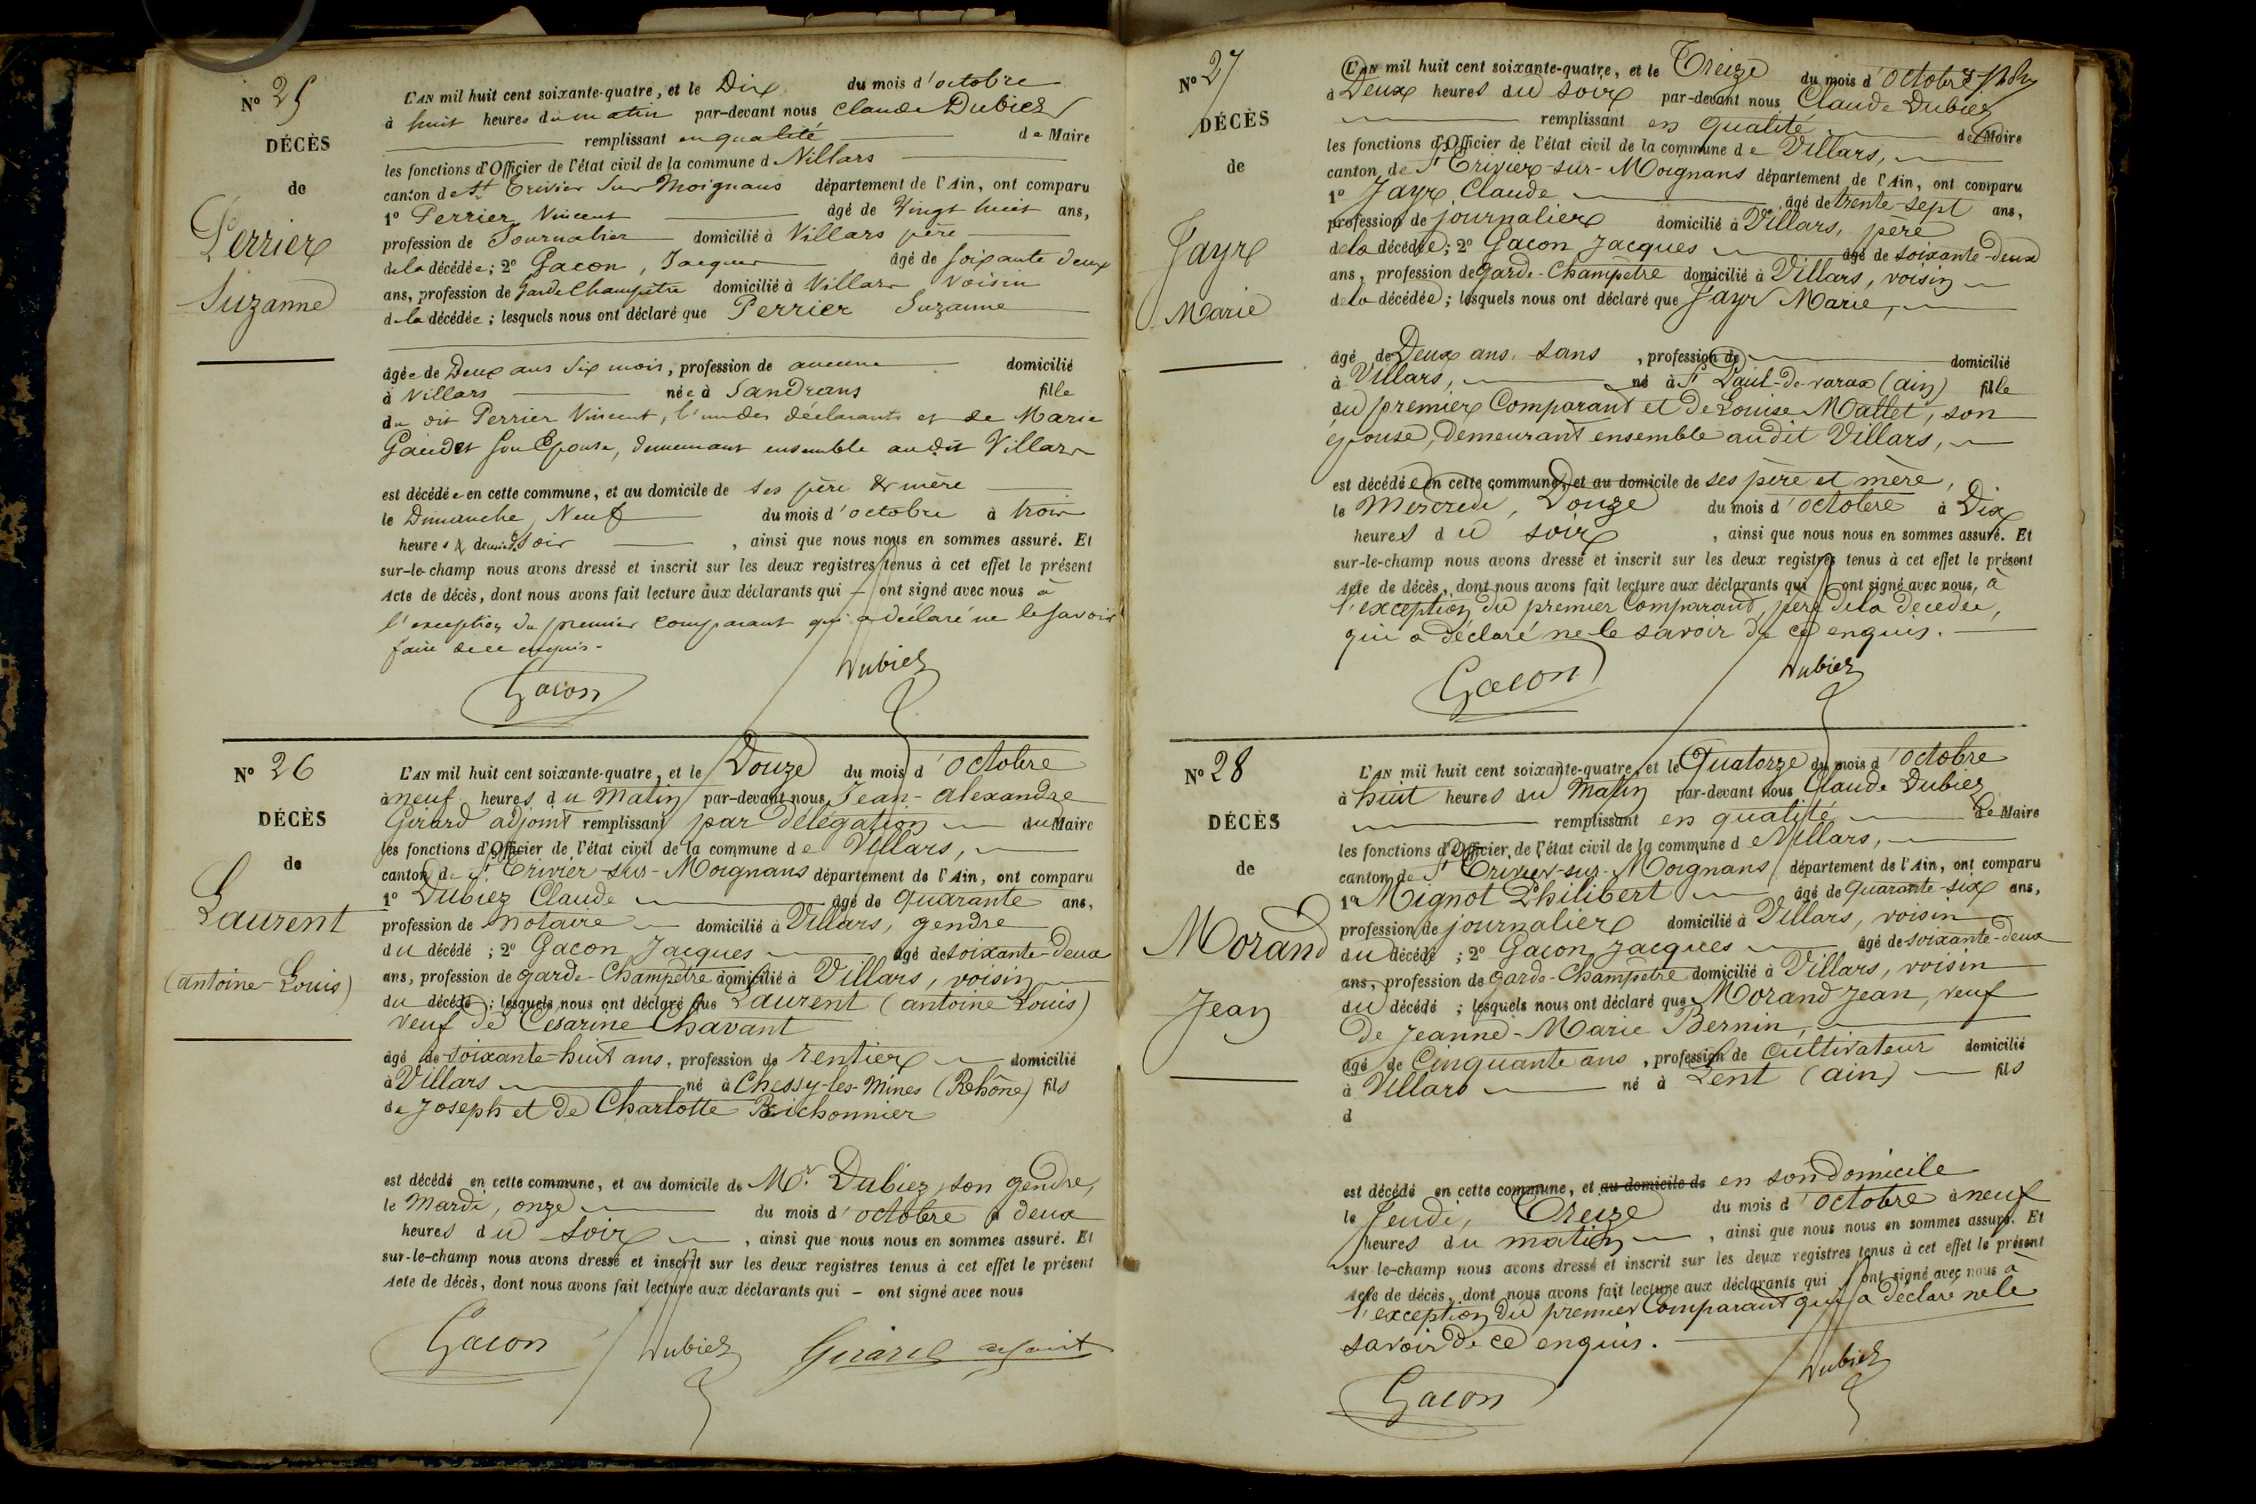 N° 25
DÉCÈS
de
Perrier
Suzanne
L'AN mil huit cent soixante-quatre, et le Dix du mois d'octobre
à huit heures du matin par-devant nous Claude Dubiez
remplissant en qualité de Maire
les fonctions d'Officier de l'état civil de la commune de Villars
canton de St Trivier sur Moignans département de l'Ain, ont comparu
1° Perrier Vincent âgé de Vingt huit ans,
profession de Journalier domicilié à Villars père
de la décédée ; 2° Gacon, Jacques âgé de soixante deux
ans, profession de Garde Champêtre domicilié à Villars Voisin
de la décédée ; lesquels nous ont déclaré que Perrier Suzanne
âgée de Deux ans Six mois, profession de aucune domicilié
à Villars née à Sandrans fille
du dit Perrier Vincent, l'un des déclarants et de Marie
Gaudet son Epouse, demeurant ensemble au dit Villars
est décédée en cette commune, et au domicile de ses père & mère
le Dimanche, Neuf du mois d'octobre à trois
heures & demie soir, ainsi que nous nous en sommes assuré. Et
sur-le-champ nous avons dressé et inscrit sur les deux registres tenus à cet effet le présent
Acte de décès, dont nous avons fait lecture aux déclarants qui — ont signé avec nous à
l'exception du premier comparant qui a déclaré ne le savoir
faire de ce enquis.
Gacon Dubiez
N° 26
DÉCÈS
de
Laurent
(antoine-Louis)
L'AN mil huit cent soixante-quatre, et le Douze du mois d'octobre
à neuf heures du Matin par-devant nous Jean-Alexandre
Girard adjoint remplissant par délégation du Maire
les fonctions d'Officier de l'état civil de la commune de Villars,
canton de St Trivier-sur-Moignans département de l'Ain, ont comparu
1° Dubiez Claude âgé de quarante ans,
profession de notaire domicilié à Villars, gendre
du décédé ; 2° Gacon Jacques âgé de soixante-deux
ans, profession de garde-Champêtre domicilié à Villars, voisin
du décédé ; lesquels nous ont déclaré que Laurent (antoine Louis)
veuf de Césarine Chavant
âgé de soixante-huit ans, profession de rentier domicilié
à Villars né à Chessy-les-Mines (Rhône) fils
de Joseph et de Charlotte Beichonnier
est décédé en cette commune, et au domicile de Mr. Dubiez, son gendre,
le Mardi, onze du mois d'octobre à deux
heures du soir, ainsi que nous nous en sommes assuré. Et
sur-le-champ nous avons dressé et inscrit sur les deux registres tenus à cet effet le présent
Acte de décès, dont nous avons fait lecture aux déclarants qui — ont signé avec nous
Gacon Dubiez Girard adjoint
N° 27
DÉCÈS
de
Jayr
Marie
L'AN mil huit cent soixante-quatre, et le Treize du mois d'octobre
à Deux heures du soir par-devant nous Claude Dubiez
remplissant en qualité de Maire
les fonctions d'Officier de l'état civil de la commune de Villars,
canton de St Trivier-sur-Moignans département de l'Ain, ont comparu
1° Jayr, Claude âgé de trente-sept ans,
profession de journalier domicilié à Villars, père
de la décédée ; 2° Gacon Jacques âgé de soixante-deux
ans, profession de garde-Champêtre domicilié à Villars, voisin
de la décédée ; lesquels nous ont déclaré que Jayr Marie,
âgé de Deux ans, sans, profession de domicilié
à Villars, né à St Paul-de-varax (ain) fille
du premier Comparant et de Louise Mallet, son
épouse, demeurant ensemble audit Villars,
est décédée en cette commune, et au domicile de ses père et mère,
le Mercredi, Douze du mois d'octobre à Dix
heures du soir, ainsi que nous nous en sommes assuré. Et
sur-le-champ nous avons dressé et inscrit sur les deux registres tenus à cet effet le présent
Acte de décès, dont nous avons fait lecture aux déclarants qui ont signé avec nous, à
l'exception du premier Comparant, père de la décédée,
qui a déclaré ne le savoir de ce enquis.
Gacon Dubiez
N° 28
DÉCÈS
de
Morand
Jean
L'AN mil huit cent soixante-quatre, et le Quatorze du mois d'octobre
à huit heures du Matin par-devant nous Claude Dubiez
remplissant en qualité de Maire
les fonctions d'Officier de l'état civil de la commune de Villars,
canton de St Trivier-sur-Moignans département de l'Ain, ont comparu
1° Mignot Philibert âgé de quarante-six ans,
profession de journalier domicilié à Villars, voisin
du décédé ; 2° Gacon Jacques âgé de soixante-deux
ans, profession de garde-Champêtre domicilié à Villars, voisin
du décédé ; lesquels nous ont déclaré que Morand Jean, veuf
de Jeanne-Marie Bernin,
âgé de Cinquante ans, profession de cultivateur domicilié
à Villars né à Lent (ain) fils
d
est décédé en cette commune, et au domicile de en son domicile
le Jeudi, Treize du mois d'octobre à neuf
heures du matin, ainsi que nous nous en sommes assuré. Et
sur-le-champ nous avons dressé et inscrit sur les deux registres tenus à cet effet le présent
Acte de décès, dont nous avons fait lecture aux déclarants qui ont signé avec nous à
l'exception du premier Comparant qui a déclaré ne le
savoir de ce enquis.
Gacon Dubiez